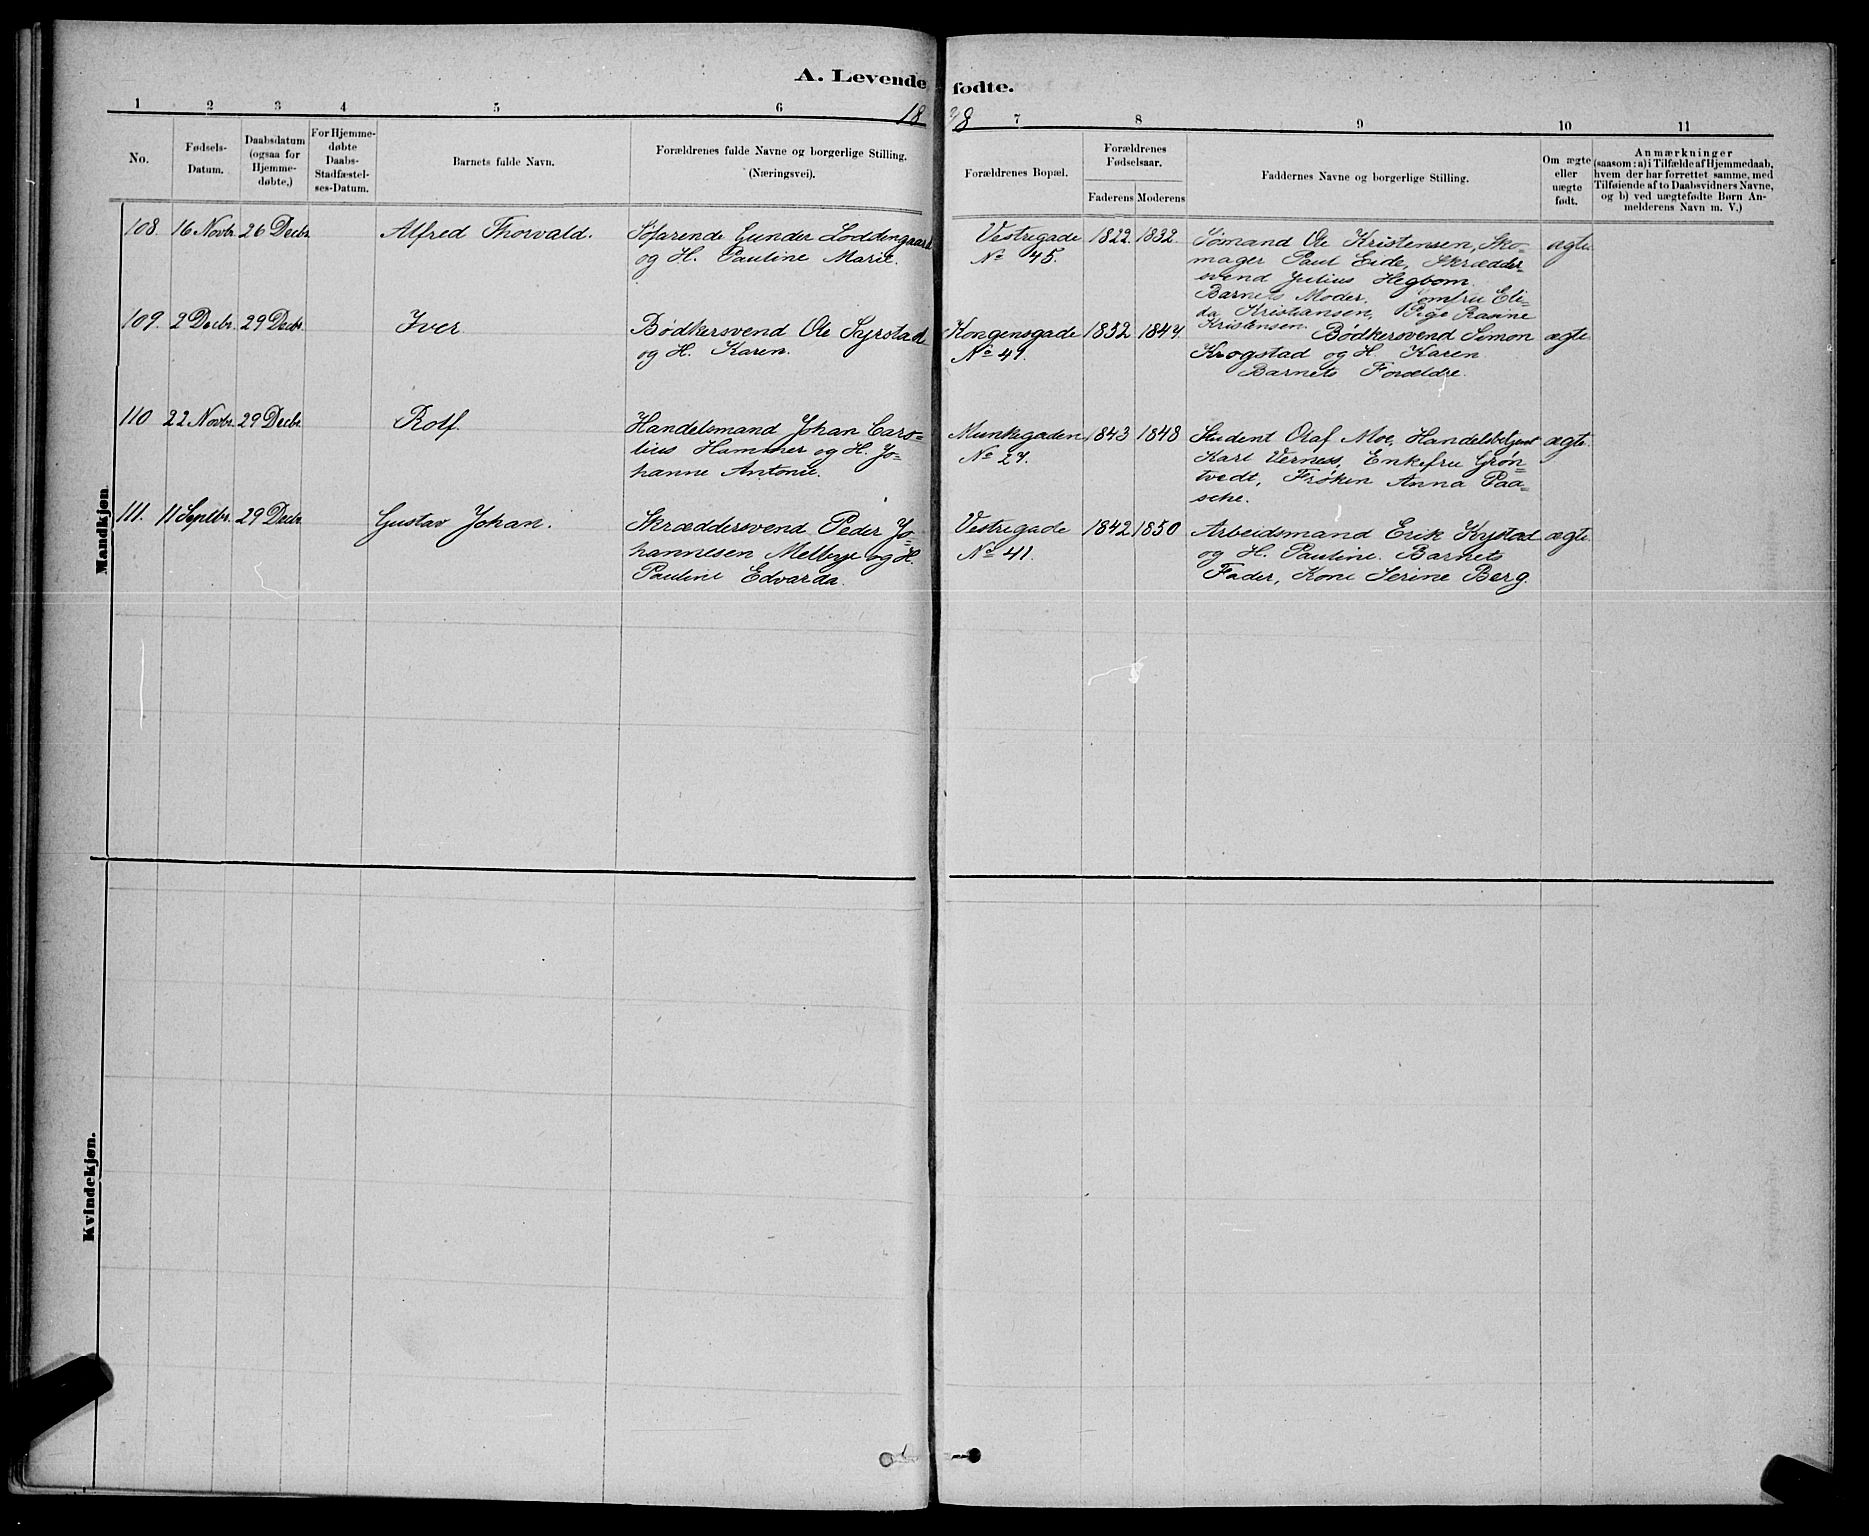 A. Levende fødte.
18 78
1 2 3 4 5 6 7 8 9 10 11
No.
Fødsels-
Datum.
Daabsdatum
(ogsaa for
Hjemme-
døbte,)
For Hjemme-
døbte
Daabs-
Stadfæstel-
ses-Datum.
Barnets fulde Navn.
Forældrenes fulde Navne og borgerlige Stilling.
(Næringsvei).
Forældrenes Bopæl.
Forældrenes
Fødselsaar.
Faderens Moderens
Faddernes Navne og borgerlige Stilling.
Om ægte
eller
uægte
født.
Anmærkninger
(saasom: a) i Tilfælde af Hjemmedaab,
hvem der har forrettet samme, med
Tilføiende af to Daabsvidners Navne,
og b) ved uægtefødte Børn An-
melderens Navn m. V.)
Mandkjøn
108. 16 Novbr. 26 Decbr. Alfred Thorvald.
Søfarende Gunder Loddengaard
og H. Pauline Marie.
Vestregade
No 45.
1822. 1832.
Sømand Ole Kristensen, Sko-
mager Paul Eide, Skrædder-
svend Julius Hegbom
Barnets Moder, Jomfru Eli-
da Kristiansen, Pige Rasine
Kristensen.
ægte
109. 2 Decbr. 29 Decbr. Iver
Bødkersvend Ole Syrstad
og H. Karen.
Kongensgade
No 47.
1852 1847.
Bødkersvend Simon
Krogstad og H. Karen
Barnets Forældre.
ægte
110 22 Novbr. 29 Decbr. Rolf.
Handelsmand Johan Caro-
lius Hammer og H. Jo-
hanne Antonie.
Munkegaden
No 27.
1843 1848
Student Olaf Moe, Handelsbetjent
Karl Verness, Enkefru Grøn-
tvedt, Frøken Anna Paa-
sche.
ægte
111. 11 Septbr. 29 Decbr. Gustav Johan.
Skræddersvend Peder Jo-
hannesen Melbye og H.
Pauline Edvarda.
Vestregade
No 41.
1842 1850
Arbeidsmand Erik Kystad
og H. Pauline. Barnets
Fader, Kone Serine Berg.
ægte
Kvindekjøn.